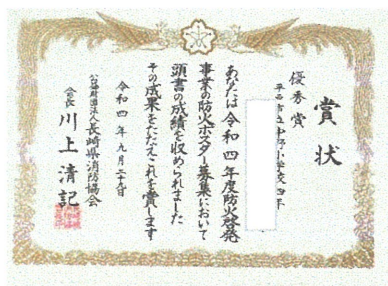 賞状
優秀賞
平戸市立中野小学校四年
あなたは令和四年度防火啓発
事業の防火ポスター募集において
頭書の成績を収められました
その成果をたたえこれを賞します
令和四年九月二十九日
公益財団法人長崎県消防協会
会長 川上清記